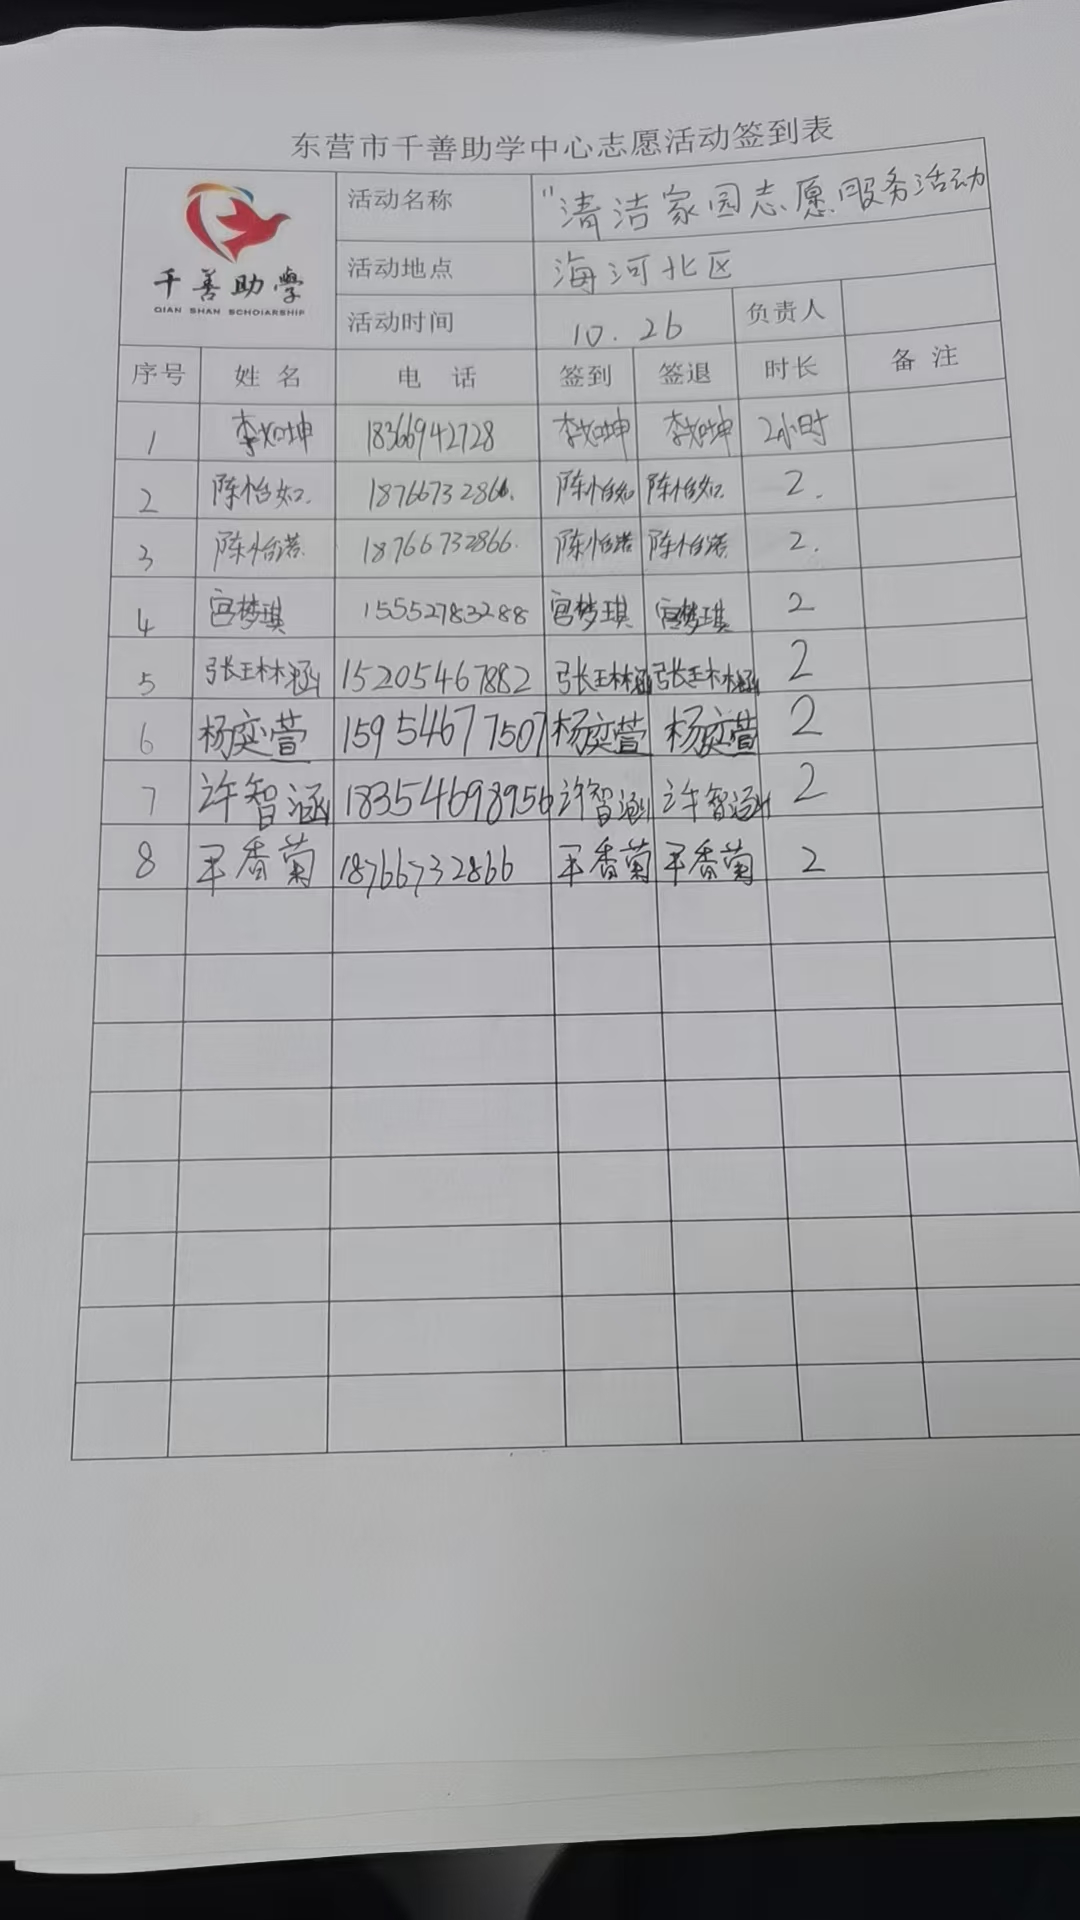 东营市千善助学中心志愿活动签到表
千善助學
QIAN SHAN SCHOIARSHIP
活动名称 "清洁家园志愿服务活动
活动地点 海河北区
活动时间 10.26 负责人
序号 姓名 电话 签到 签退 时长 备注
1 李如坤 18366942728 李如坤 李如坤 2小时
2 陈怡如. 18766732866. 陈怡如 陈怡如. 2.
3 陈怡诺. 18766732866. 陈怡诺 陈怡诺. 2.
4 宫梦琪 15552783288 宫梦琪 宫梦琪 2
5 张王林涵 15205467882 张王林涵 张王林涵 2
6 杨奕萱 15954677507 杨奕萱 杨奕萱 2
7 许智涵 18354698956 许智涵 许智涵 2
8 香菊 18766732866 香菊 香菊 2